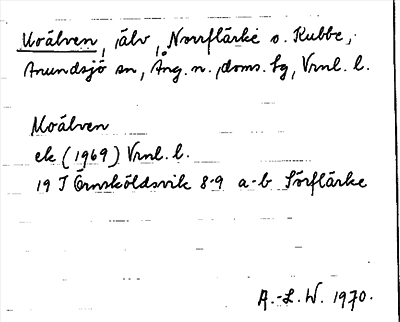 Moälven, älv, Norrflärke o. Kubbe,
Anundsjö sn, Ång. n., doms. bg, Vrnl. l.
Moälven
ek (1969) Vrnl. l.
19 J Örnsköldsvik 8-9 a-b Sörflärke
A.-L. W. 1970.